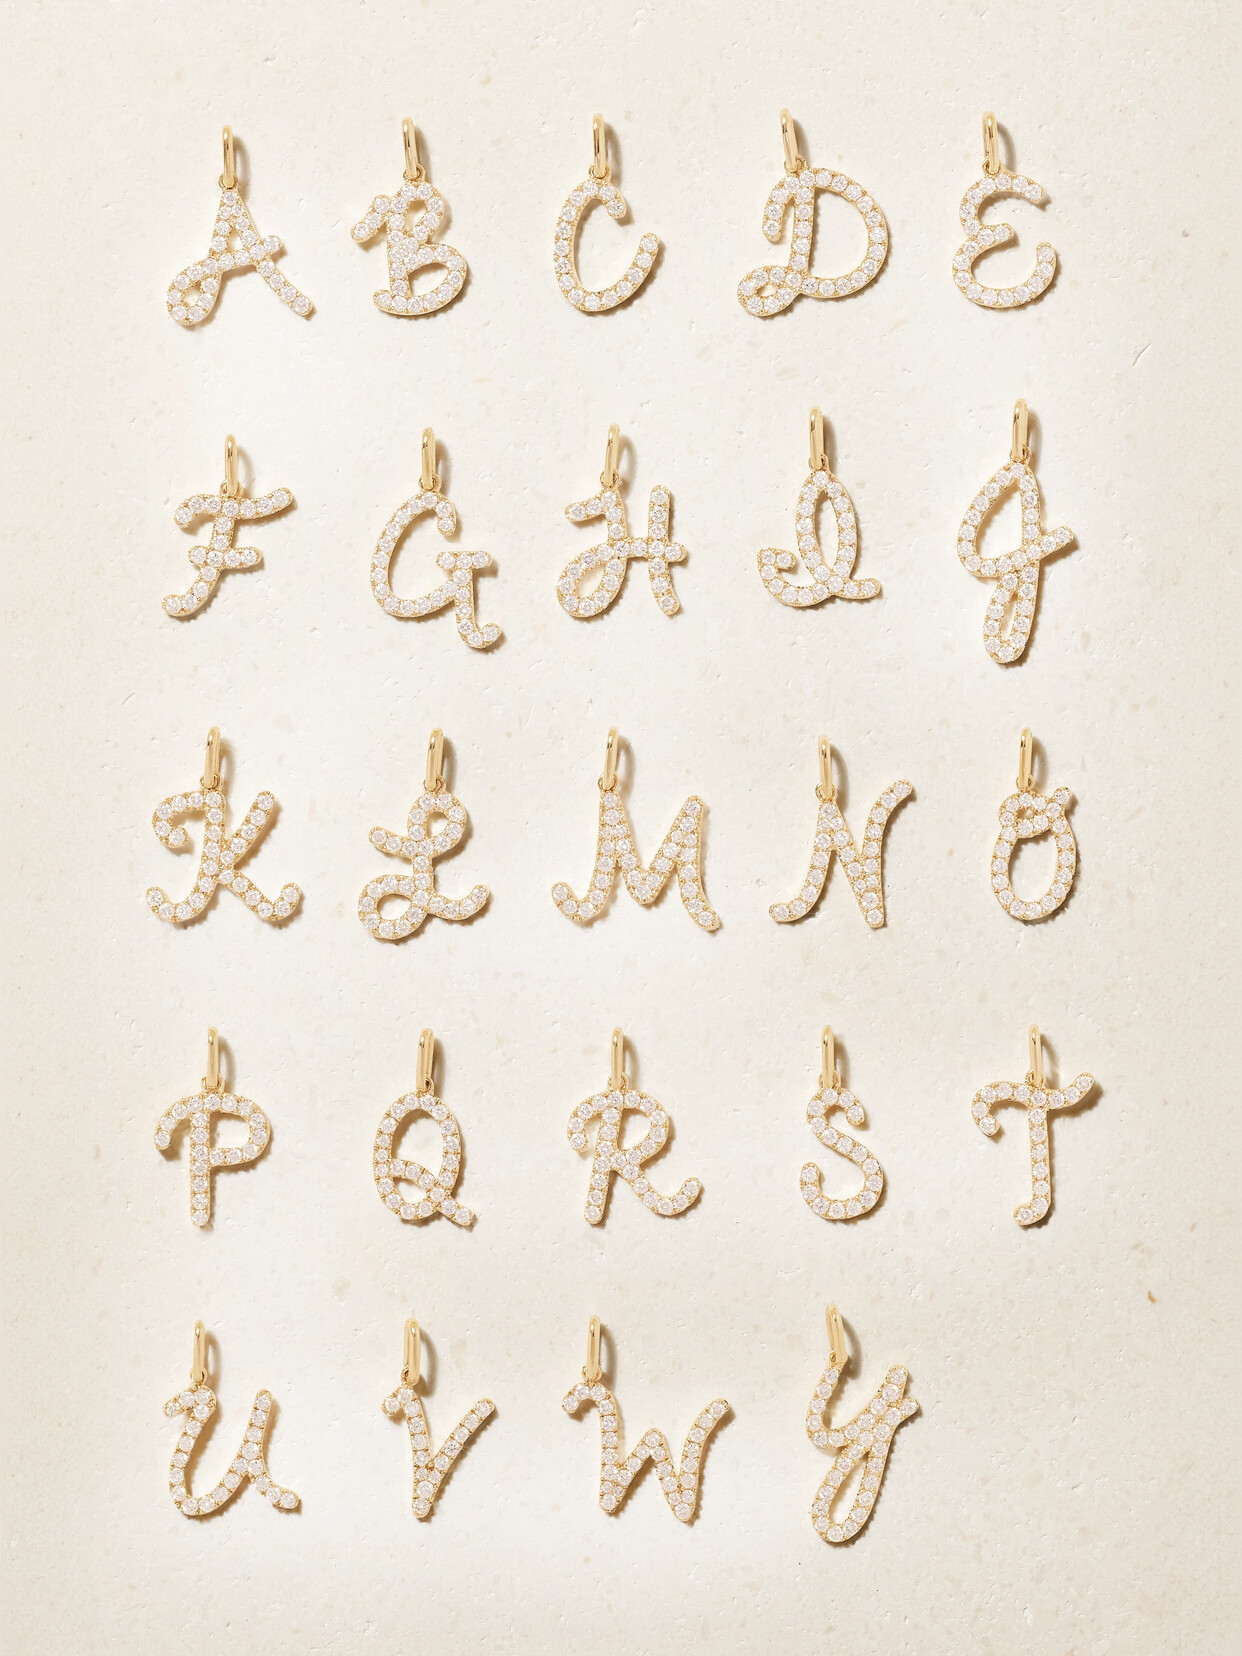 A B C D E
F G H I J
K L M N O
P Q R S T
U V W Y